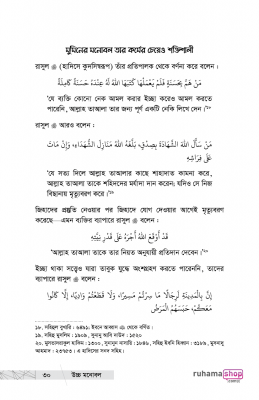 মুমিনের মনোবল তার কর্মের চেয়েও শক্তিশালী
রাসুল ﷺ (হাদিসে কুদসিস্বরূপ) তাঁর প্রতিপালক থেকে বর্ণনা করে বলেন :
مَنْ هَمَّ بِحَسَنَةٍ فَلَمْ يَعْمَلْهَا كَتَبَهَا اللَّهُ لَهُ عِنْدَهُ حَسَنَةً كَامِلَةً
'যে ব্যক্তি কোনো নেক আমল করার ইচ্ছা করেও আমল করতে
পারেনি, আল্লাহ তাআলা তার জন্য পূর্ণ একটি নেকি লিখে দেন।'১৮
রাসুল ﷺ আরও বলেন :
مَنْ سَأَلَ اللَّهَ الشَّهَادَةَ بِصِدْقٍ، بَلَّغَهُ اللَّهُ مَنَازِلَ الشُّهَدَاءِ، وَإِنْ مَاتَ
عَلَى فِرَاشِهِ
'যে সত্য দিলে আল্লাহ তাআলার কাছে শাহাদাত কামনা করে,
আল্লাহ তাআলা তাকে শহিদদের মর্যাদা দান করেন; যদিও সে নিজ
বিছানায় মৃত্যুবরণ করে।'১৯
জিহাদের প্রস্তুতি নেওয়ার পর জিহাদে যোগ দেওয়ার আগেই মৃত্যুবরণ
করেছে—এমন ব্যক্তির ব্যাপারে রাসুল ﷺ বলেন :
قَدْ أَوْقَعَ اللَّهُ أَجْرَهُ عَلَى قَدْرِ نِيَّتِهِ
'আল্লাহ তাআলা তাকে তার নিয়ত অনুযায়ী প্রতিদান দেবেন।'২০
ইচ্ছা থাকা সত্ত্বেও যারা তাবুক যুদ্ধে অংশগ্রহণ করতে পারেননি, তাদের
ব্যাপারে রাসুল ﷺ বলেন :
إِنَّ بِالْمَدِينَةِ لَرِجَالًا مَا سِرْتُمْ مَسِيرًا، وَلَا قَطَعْتُمْ وَادِيًا، إِلَّا كَانُوا
مَعَكُمْ، حَبَسَهُمُ الْمَرَضُ
১৮. সহিহুল বুখারি : ৬৪৯১; ইবনে আব্বাস ﷺ থেকে বর্ণিত।
১৯. সহিহু মুসলিম : ১৯০৯, সুনানু আবি দাউদ : ১৫২০
২০. মুসতাদরাকুল হাকিম : ১৩০০, সুনানুন নাসায়ি : ১৮৪৬, সহিহু ইবনি হিব্বান : ৩১৮৯, মুসনাদু
আহমাদ : ২৩৭৫৩। এ হাদিসের সনদ সহিহ।
৩০ উচ্চ মনোবল
ruhamashop
.com